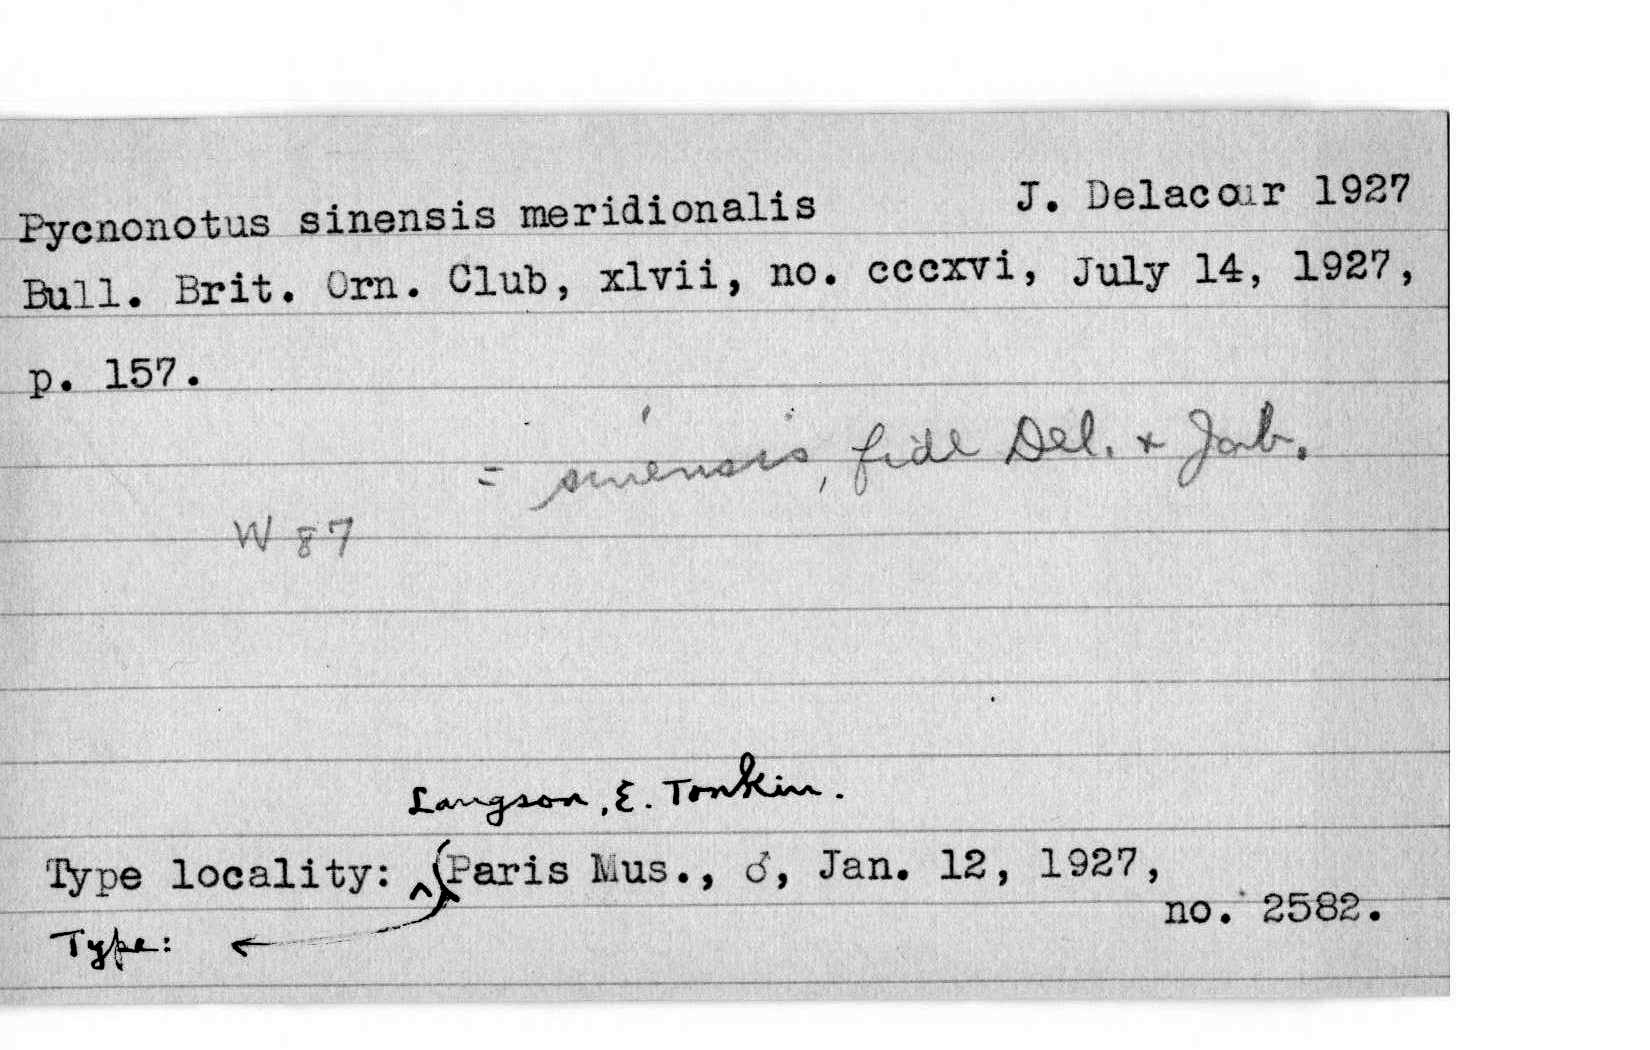 Pycnonotus sinensis meridionalis J. Delacour 1927
Bull. Brit. Orn. Club, xlvii, no. cccxvi, July 14, 1927,
p. 157.
= sinensis, fide Del. + Jab.
W 87
Langson, E. Tonkin.
Type locality: ^(Paris Mus., ♂, Jan. 12, 1927,
no. 2582.
Type: ←